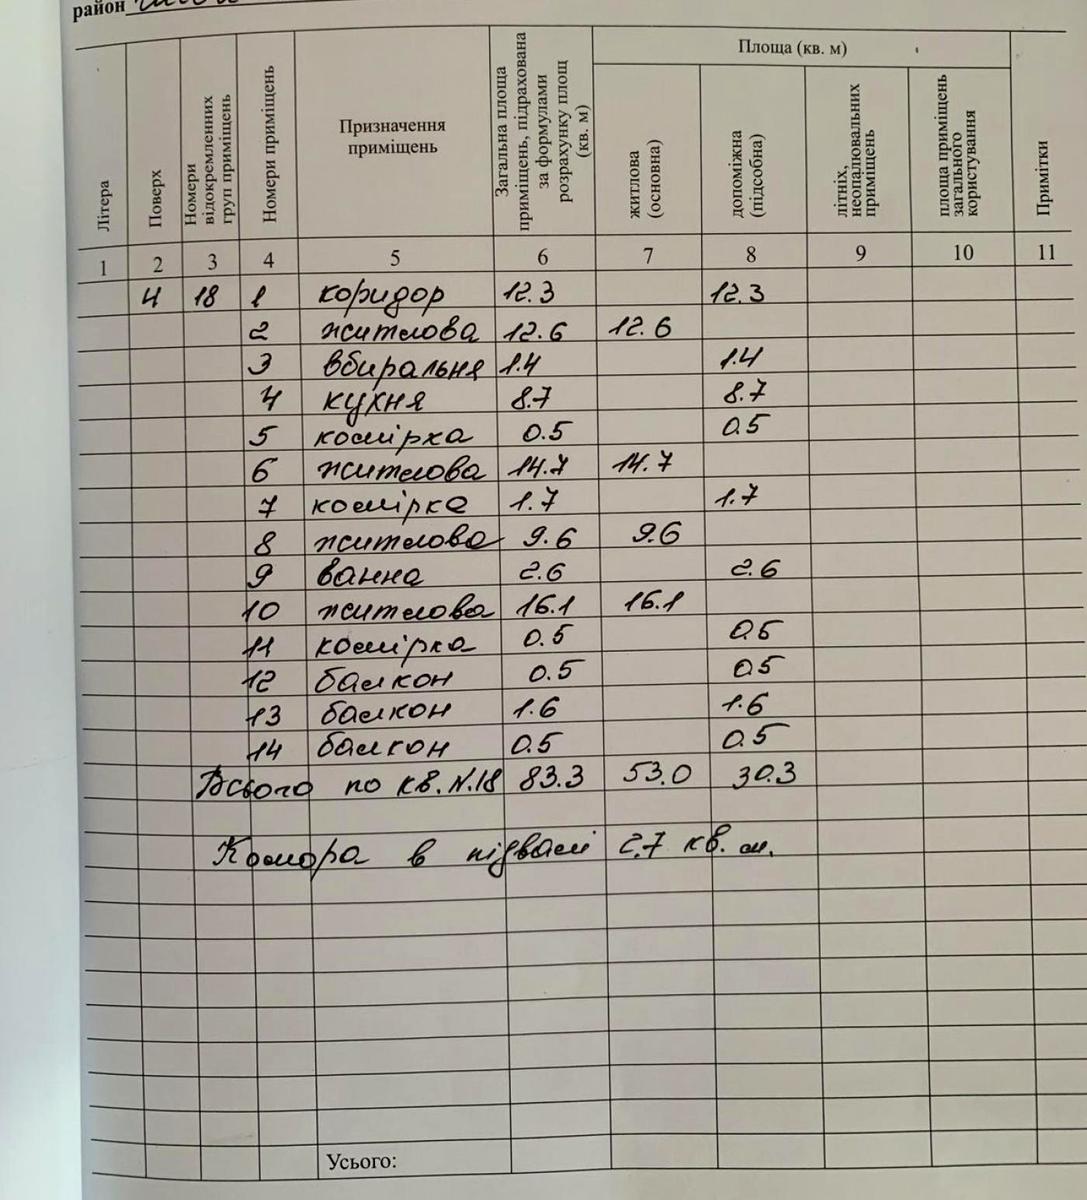 район
Літера
Поверх
Номери відокремленних груп приміщень
Номери приміщень
Призначення приміщень
Загальна площа приміщень, підрахована за формулами розрахунку площ (кв. м)
Площа (кв. м)
житлова (основна)
допоміжна (підсобна)
літніх, неопалювальних приміщень
площа приміщень загального користування
Примітки
1 2 3 4 5 6 7 8 9 10 11
4 18 1 коридор 12.3 12.3
2 житлова 12.6 12.6
3 вбиральня 1.4 1.4
4 кухня 8.7 8.7
5 комірка 0.5 0.5
6 житлова 14.7 14.7
7 комірка 1.7 1.7
8 житлова 9.6 9.6
9 ванна 2.6 2.6
10 житлова 16.1 16.1
11 комірка 0.5 0.5
12 балкон 0.5 0.5
13 балкон 1.6 1.6
14 балкон 0.5 0.5
Всього по кв. N.18 83.3 53.0 30.3
Комора в підвалі 2.7 кв. м.
Усього: